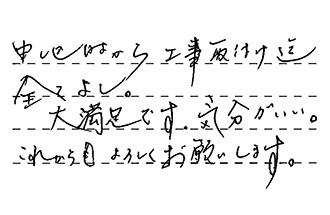 申し込みから工事取付け迄
全てよし。
大満足です。気分がいい。
これからもよろしくお願いします。